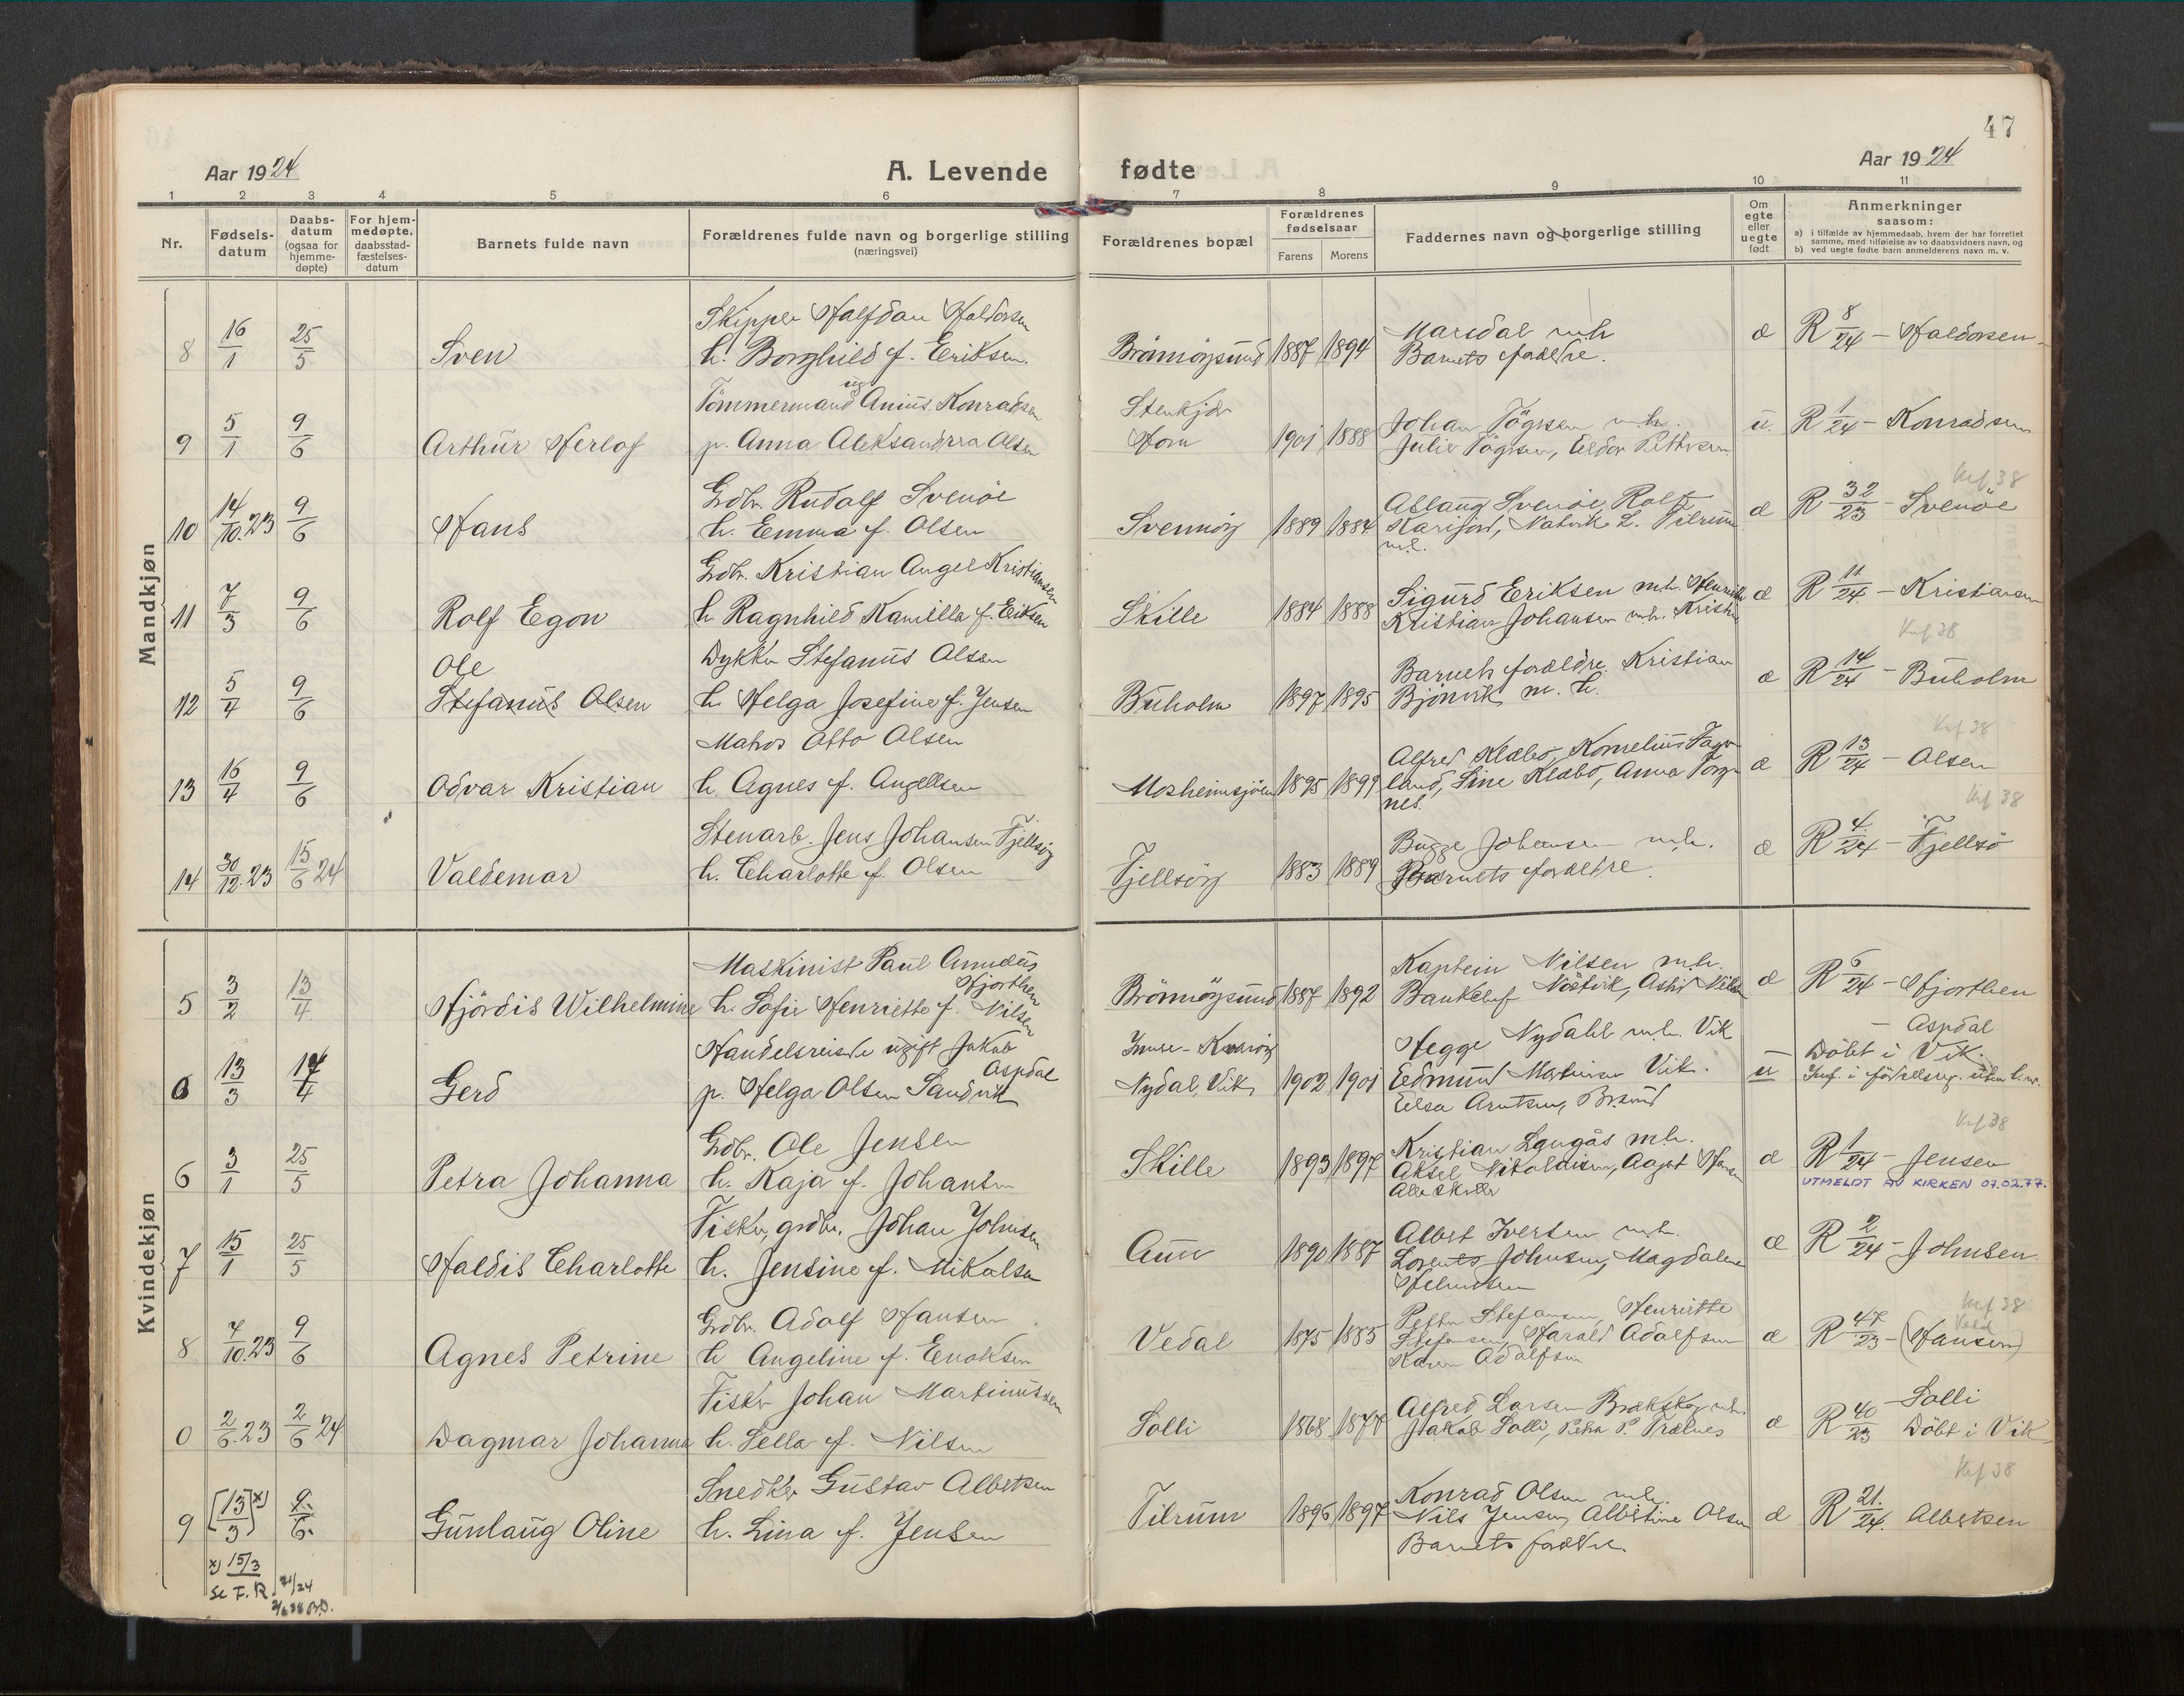 47
Aar 1924
A. Levende fødte
Aar 1924
1 2 3 4 5 6 7 8 9 10 11
Nr.
Fødsels-datum
Daabs-datum (ogsaa for hjemme-døpte)
For hjem-medøpte, daabsstad-fæstelses-datum
Barnets fulde navn
Forældrenes fulde navn og borgerlige stilling (næringsvei)
Forældrenes bopæl
Forældrenes fødselsaar
Farens Morens
Faddernes navn og borgerlige stilling
Om egte eller uegte født
Anmerkninger saasom:
a) i tilfælde av hjemmedaab, hvem der har forrettet samme, med tilføielse av to daabsvidners navn, og
b) ved uegte fødte barn anmelderens navn m. v.
Mandkjøn
8 16/1 25/5 Sven
Skipper Halfdan Haldorsen
h. Borghild f. Eriksen.
Brønnøysund 1887 1894
Marsdal m.h.
Barnets forældre.
æ R 8/24 - Haldorsen
9 5/1 9/6 Arthur Herlof
Tømmermand ug Anius Konradsen
p. Anna Aleksandrra Olsen
Stenkjær
Horn 1901 1888
Johan Tögersen m.h.
Julie Tögersen, Eldor Pettersen
u. R 1/24 - Konradsen
10 14/10.23 9/6 Hans
Grdbr. Rudolf Svenöe
h. Emma f. Olsen
Svennöy 1889 1884
Aslaug Svenöe, Rolf
Karifjord, Natvik L. Tilrum
m.l.
æ R 32/23 - Svenöe
Knf 38
11 7/3 9/6 Rolf Egon
Grdbr. Kristian Angel Kristiansen
h Ragnhild Kamilla f. Eriksen
Skille 1884 1888
Sigurd Eriksen m.h. Henrik
Kristian Johansen m.h. Kristi
æ R 11/24 - Kristiansen
12 5/4 9/6 Ole
Stefanus Olsen
Dykker Stefanus Olsen
h. Helga Josefine f. Jensen
Buholm 1897 1895
Barnets forældre. Kristian
Bjönvik m. h.
æ R 14/24 - Buholm
Knf 38
13 16/4 9/6 Odvar Kristian
Matros Otto Olsen
h Agnes f. Angellsen
Mosheimsjöen 1895 1899
Alfred Klæbo, Kornelius Fager
land, Line Klæbo, Anna Torg
nes.
æ R 13/24 - Olsen
Knf 38
14 30/12.23 15/6 24 Valdemar
Stenarb. Jens Johansen Fjellsöy
h. Charlotte f. Olsen
Fjellsöy 1883 1889
Bugge Johansen m.h.
Barnets forældre.
æ R 4/24 - Fjellsö
Knf 38
Kvindekjøn
5 3/2 13/4 Hjördis Wilhelmine
Maskinist Paul Amudeus
Hjorthen
h. Sofie Henriette f. Nilsen
Brönnöysund 1887 1892
Kaptein Nilsen m.h.
Bankchef Nöstvik, Astrid Nilsen
æ R 6/24 - Hjorthen
6 13/3 17/4 Gerd
Handelsreisende ugift Jakob
Aspdal
p. Helga Olsen Sandvik
Nydal, Vik 1902 1901
Hegge Nydahl m.h. Vik
Edmund Martinsen Vik.
Elsa Arntsen, Brsund
u - Aspdal
Döbt i Vik.
6 3/1 25/5 Petra Johanna
Grdbr. Ole Jensen
h. Kaja f. Johansen
Skille 1893 1897
Kristian Langås m.h.
Aksel Nikolaisen, Aagot Hansen
Alle Skille
æ R 1/24 - Jensen
UTMELDT AV KIRKEN 07.02.77.
Knf 38
7 15/1 25/5 Haldis Charlotte
Fisker, grdbr. Johan Johnsen
h. Jensine f. Mikalsen
Aun 1890 1887
Albert Iversen m.h.
Lorents Johnsen, Magdalene
Helmersen
æ R 2/24 - Johnsen
8 7/10.23 9/6 Agnes Petrine
Grdbr. Adolf Hansen
h Angeline f. Enoksen
Vedal 1875 1885
Petter Stefansen, Henriette
Stefansen, Harald Adolfsen
Karen Adolfsen
æ R 47/23 - (Hansen)
Knf 38
0 2/6.23 2/6 24 Dagmar Johanna
Fisker Johan Martinussen
h. Sella f. Nilsen
Solli 1868 1877
Alfred Larsen Brækskog m.h.
Jakob Solli, Petra P. Trælnes
æ R 40/23 - Solli
Döbt i Vik
9 [13/3] x) 9/6. Gunlaug Oline
Snedker Gustav Albertsen
h. Lina f. Jensen
Tilrum 1896 1897
Konrad Olsen m.h.
Nils Jensen, Albertine Olsen
Barnets forældre.
æ R 21/24. Albertsen
Knf 38
x) 15/3
Se F.R. 21/24